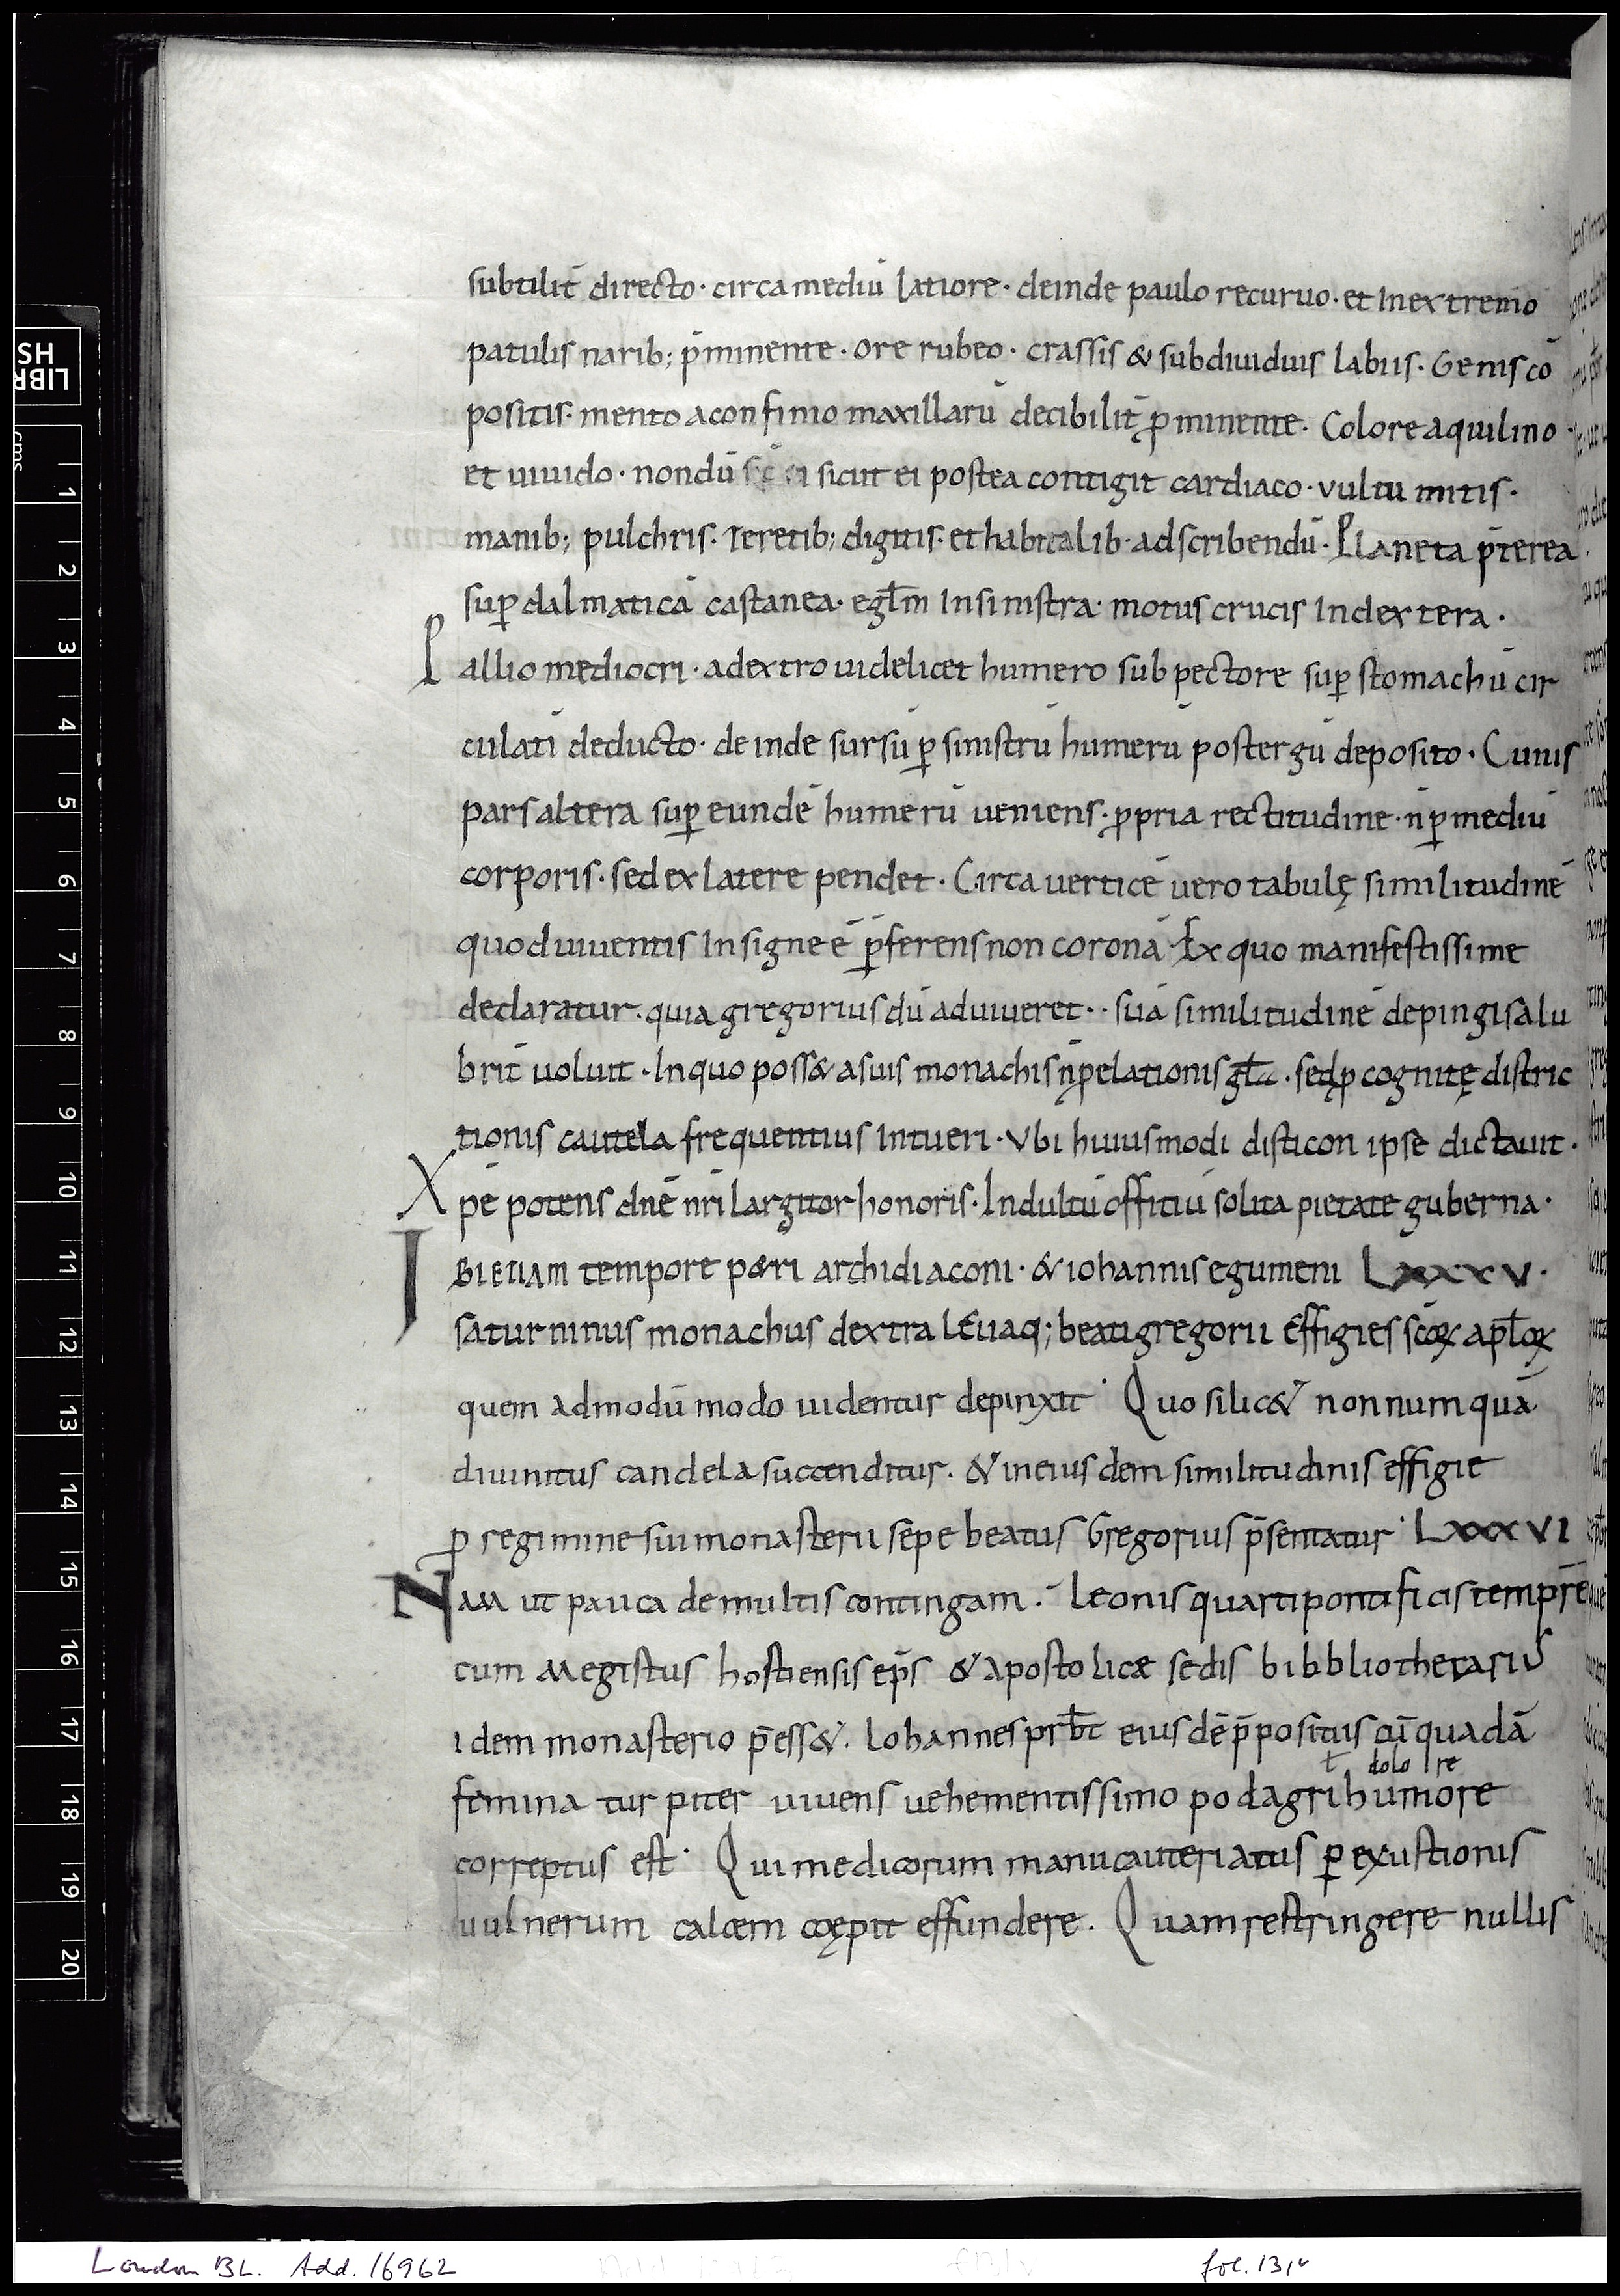 subtilit̄ directo · circa mediū latiore · deinde paulo recuruo · et In extremo
patulis narib; p̄minente · ore rubeo · crassis & subdiuiduis labiis · Genis cō
positis · mento a confinio maxillarū decibilit̄ ꝓminente · Colore aquilino
et uiuido · nondū sicut ei postea contigit cardiaco · vultu mitis ·
manib; pulchris · Teretib; digitis · et habitalib · ad scribendū · Planeta p̄terea
suꝑ dalmaticā castanea · egl̄m In sinistra · motus crucis In dextera ·
Pallio mediocri · a dextro uidelicet humero sub pectore suꝑ stomachū cir
culatī deducto · deinde sursū ꝑ sinistrū humerū post ergū deposito · Cuius
pars altera suꝑ eundē humerū ueniens · ꝓpria rectitudine · n̄ ꝑ mediū
corporis · sed ex latere pendet · Circa uerticē uero tabulę similitudinē
quod uiuentis Insigne ē p̄ferens non coronā · Ex quo manifestissime
declaratur · quia gregorius dū aduiueret · · suā similitudinē depingi salu
brit̄ uoluit · In quo poss& a suis monachis n̄ p̄elationis gl̄a · sed ꝓ cognitę distric
tionis cautela frequentius Intueri · Vbi huiusmodi disticon ipse dictauit ·
Xpē potens dn̄e nr̄i largitor honoris · Indultū offitiū solita pietate guberna ·
IBI ETIAM tempore p&ri archidiaconi · & iohannis egumeni LXXXV ·
saturninus monachus dextra lEuaq; beati gregorii effigies sc̄oꝝ apl̄oꝝ
quem admodū modo uidentur depinxit · Quo silic& non numquā
diuinitus candela succenditur · & in eiusdem similitudinis effigie
ꝓ regimine sui monasterii sepe beatus Gregorius p̄sentatur · LXXXVI
NAM ut pauca de multis contingam · Leonis quarti pontificis tempr̄e
cum Megistus hostiensis ep̄s & apostolicæ sedis bibbliothecariu͛
idem monasterio p̄ess& · Iohannes prb̄t eiusdē p̄positus cū quadā
ł dolo re
femina turpiter uiuens uehementissimo podagri humore
correptus est · Qui medicorum manu cauteriatus ꝑ exustionis
uulnerum calcem cœpit effundere · Quam restringere nullis
London BL. Add. 16962
fol. 131v
LIBR
cms
1
2
3
4
5
6
7
8
9
10
11
12
13
14
15
16
17
18
19
20